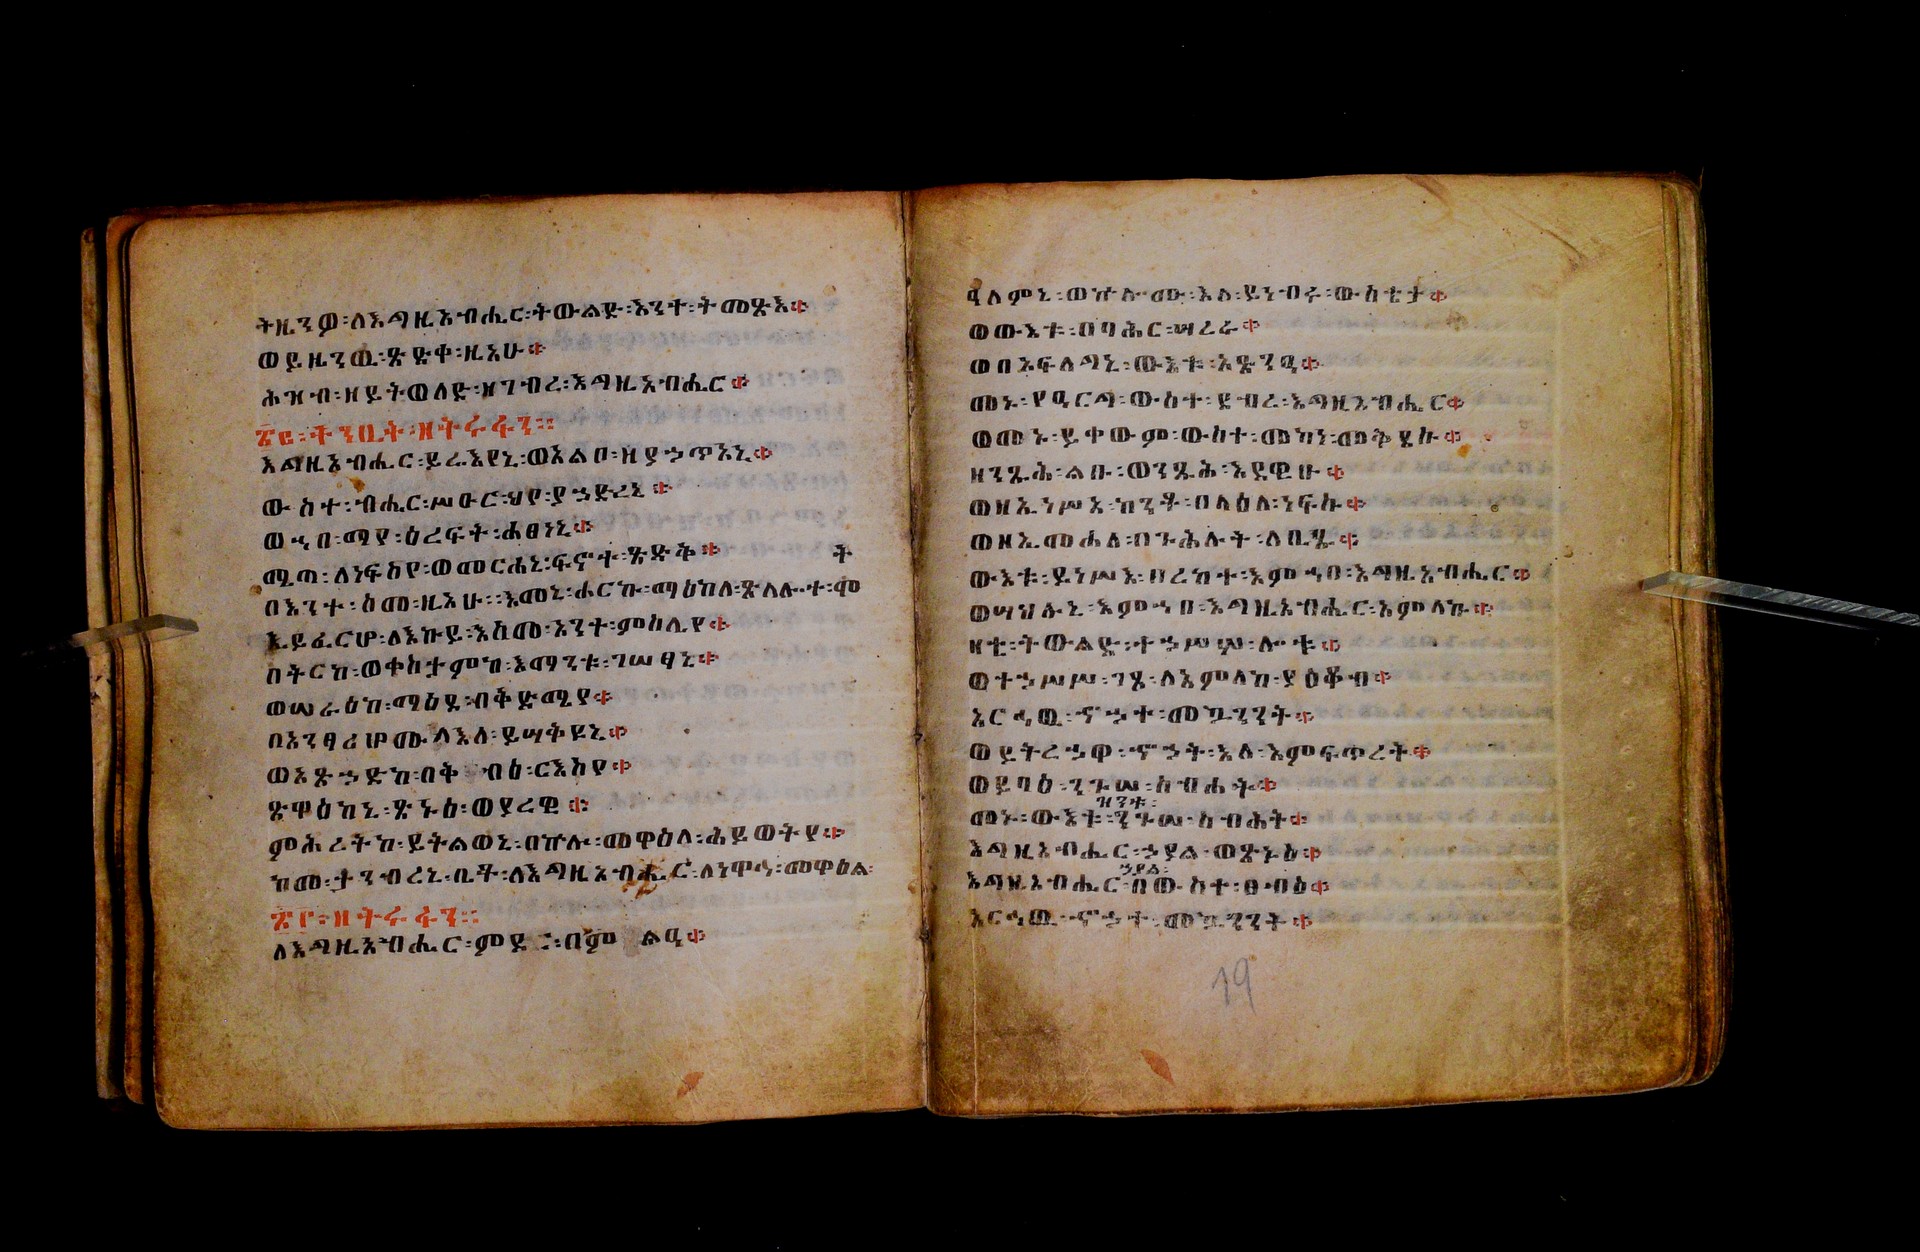 ትዜንዎ፡ለእግዚአብሔር፡ትውልድ፡እንተ፡ትመጽእ።
ወይዜንዉ፡ጽድቀ፡ዚአሁ።
ሕዝብ፡ዘይትወለድ፡ዘገብረ፡እግዚአብሔር።
፳፪፡ትንቢት፡ዘትሩፋን፡፡
እግዚአብሔር፡ይሬእየኒ፡ወአልቦ፡ዘያኃጥአኒ።
ውስተ፡ብሔር፡ሥዑር፡ህየ፡ያኃድረኒ።
ወኀበ፡ማየ፡ዕረፍት፡ሐፀነኒ።
ሜጣ፡ለነፍስየ፡ወመርሐኒ፡ፍኖተ፡ጽድቅ።
ት
በእንተ፡ስመ፡ዚአሁ፡፡እመኒ፡ሖርኩ፡ማዕከለ፡ጽላሎተ፡ሞ
ኢይፈርሆ፡ለእኩይ፡እስመ፡አንተ፡ምስሌየ።
በትርከ፡ወቀስታምከ፡እማንቱ፡ገሠፃኒ።
ወሠራዕከ፡ማዕደ፡በቅድሜየ።
በአንፃሪሆሙ፡ለእለ፡ይሣቅዩኒ።
ወአጽኃድከ፡በቅብዕ፡ርእስየ።
ጽዋዕከኒ፡ጽኑዕ፡ወያረዊ።
ምሕረትከ፡ይትልወኒ፡በኵሉ፡መዋዕለ፡ሕይወትየ።
ከመ፡ታንብረኒ፡ቤተ፡ለእግዚአብሔር፡ለነዋኃ፡መዋዕል፡
፳፫፡ዘትሩፋን፡፡
ለእግዚአብሔር፡ምድር፡በምልዓ።
ዓለምኒ፡ወኵሎሙ፡እለ፡ይነብሩ፡ውስቴታ።
ወውእቱ፡በባሕር፡ሣረራ።
ወበአፍላግኒ፡ውእቱ፡አጽንዓ።
መኑ፡የዓርግ፡ውስተ፡ደብረ፡እግዚአብሔር።
ወመኑ፡ይቀውም፡ውስተ፡መካነ፡መቅደሱ።
ዘንጹሕ፡ልቡ፡ወንጹሕ፡እደዊሁ።
ወዘኢነሥአ፡ከንቶ፡በላዕለ፡ነፍሱ።
ወዘኢመሐለ፡በጉሕሉት፡ለቢጹ።
ውእቱ፡ይነሥእ፡በረከተ፡እምኀበ፡እግዚአብሔር።
ወሣህሉኒ፡እምኀበ፡እግዚአብሔር፡አምላኩ።
ዛቲ፡ትውልድ፡ተኃሥሦ፡ሎቱ።
ወተኃሥሥ፡ገጹ፡ለአምላከ፡ያዕቆብ።
አርኅዉ፡ኆኃተ፡መኳንንት።
ወይትረኃዋ፡ኆኃት፡እለ፡እምፍጥረት።
ወይባዕ፡ንጉሠ፡ስብሐት።
ዝንቱ፡
መኑ፡ውእቱ፡ንጉሠ፡ስብሐት።
እግዚአብሔር፡ኃያል፡ወጽኑዕ።
ኃያል፡
እግዚአብሔር፡በውስተ፡ፀብዕ።
አርኅዉ፡ኆኃተ፡መኳንንት።
19